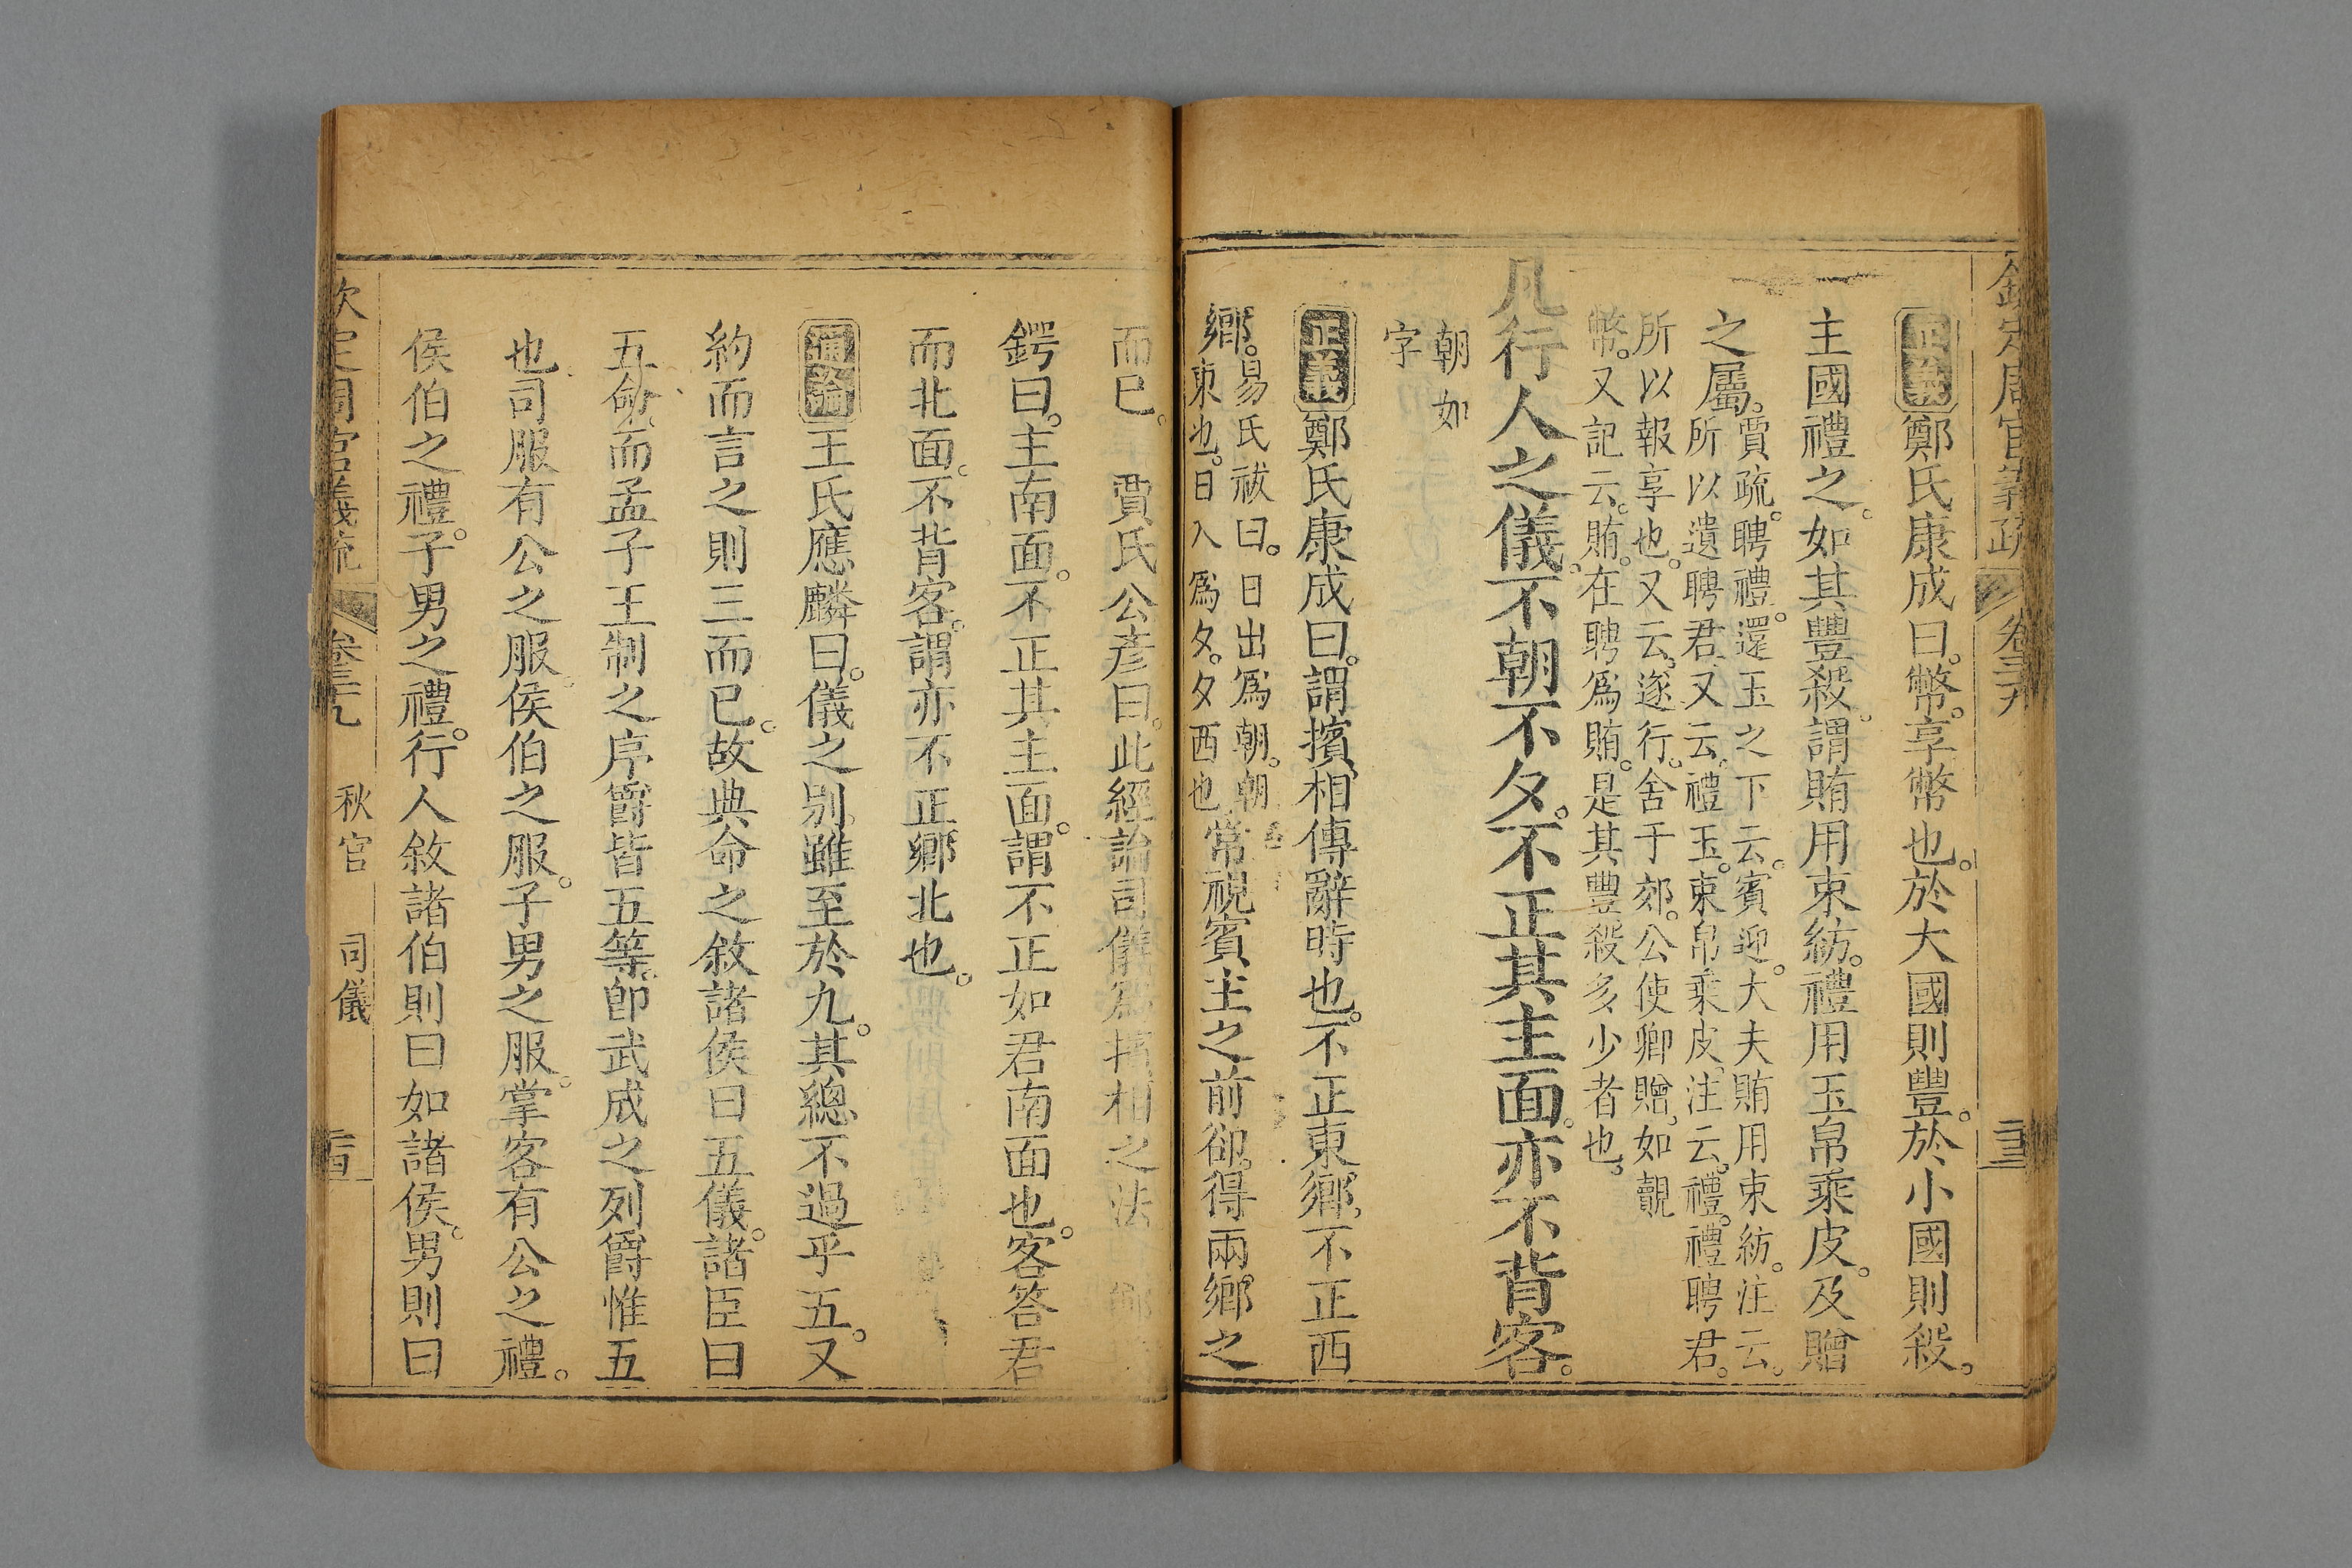 欽定周官義疏 卷三十九
正義鄭氏康成曰。幣。享幣也。於大國則豐。於小國則殺。
主國禮之。如其豐殺。謂賄用束紡。禮用玉帛乘皮。及贈
之屬。賈疏。聘禮。還玉之下云。賓迎。大夫賄用束紡。注云。
所以遺聘君。又云。禮玉。束帛乘皮。注云。禮。禮聘君。
所以報享也。又云。遂行。舍于郊。公使卿贈。如覿
幣。又記云。賄。在聘爲賄。是其豐殺多少者也。
凡行人之儀。不朝不夕。不正其主面。亦不背客。
朝如
字
正義鄭氏康成曰。謂擯相傳辭時也。不正東鄉。不正西
鄉。易氏祓曰。日出爲朝。朝
東也。日入爲夕。夕西也
常視賓主之前卻。得兩鄉之
而已。 賈氏公彦曰。此經論司儀爲擯相之法
鍔曰。主南面。不正其主面。謂不正如君南面也。客答君
而北面。不背客。謂亦不正鄉北也。
通論王氏應麟曰。儀之別雖至於九。其總不過乎五。又
約而言之則三而已。故典命之敘諸侯曰五儀。諸臣曰
五命。而孟子王制之序爵皆五等。卽武成之列爵惟五
也。司服有公之服。侯伯之服。子男之服。掌客有公之禮。
侯伯之禮。子男之禮。行人敘諸伯則曰如諸侯。男則曰
欽定周官義疏 卷三十九 秋官 司儀